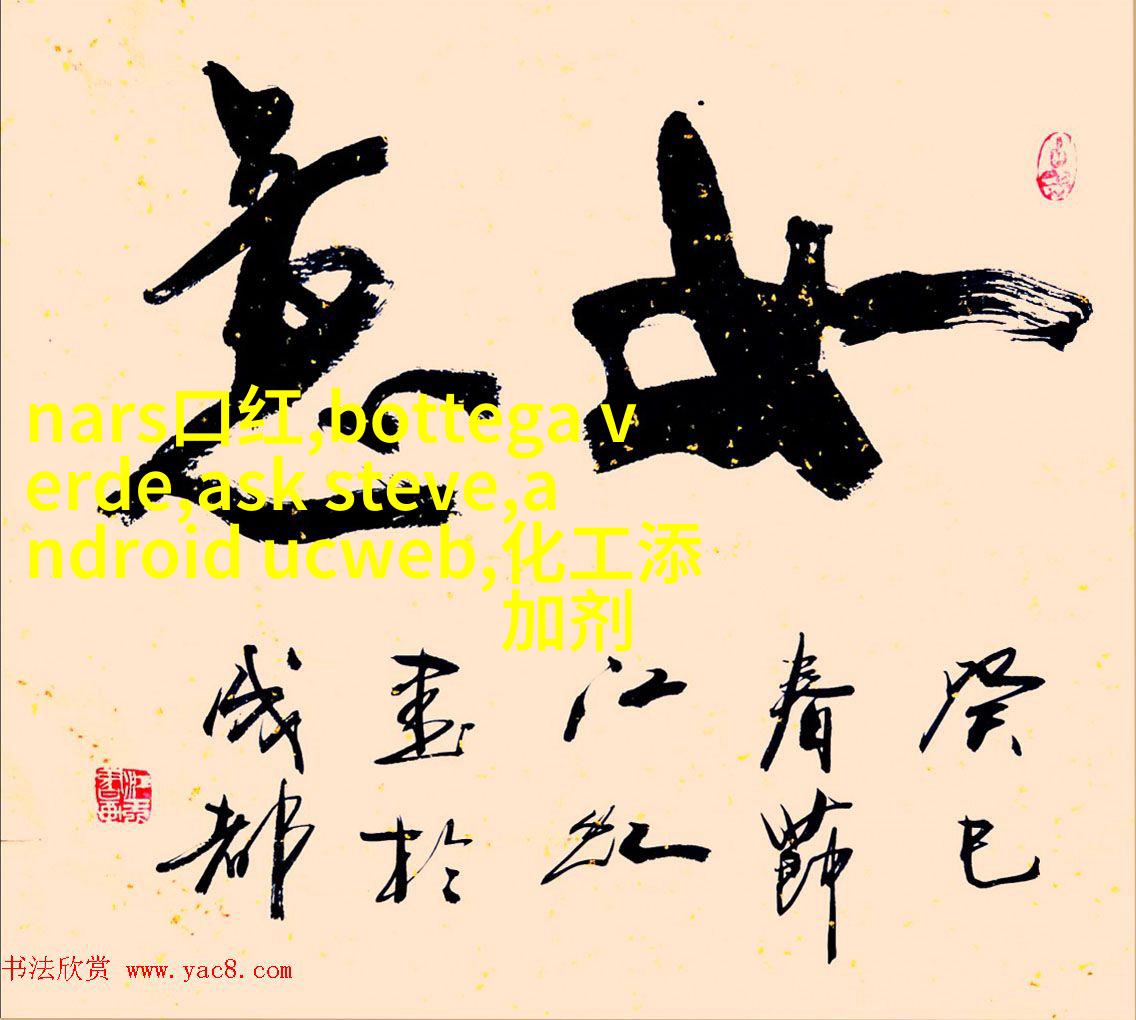 如意
nars口红,bottega v
erde,ask steve,a
ndroid ucweb,化工添
加剂
癸巳
春节
江红
书于
成都
书法欣赏 www.yac8.com